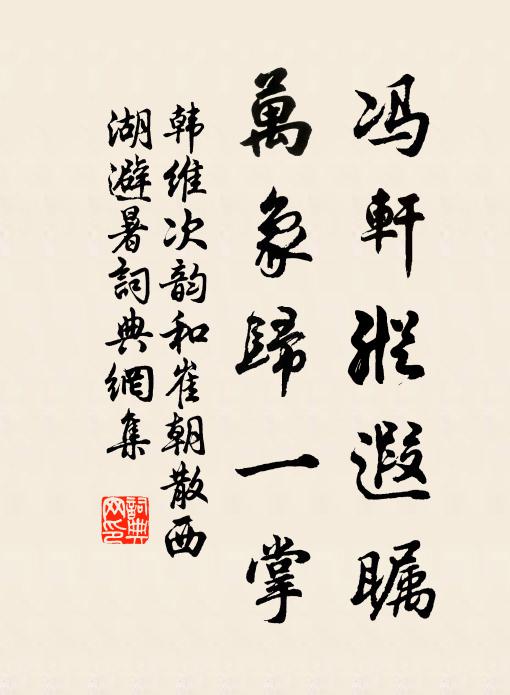 冯軒縱遐瞩
萬象歸一掌
韩维次韵和崔朝散西
湖避暑詞典網集
詞典
网印